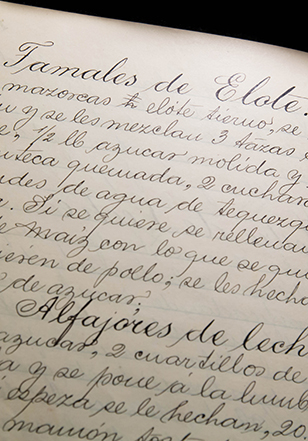 Tamales de Elote.
mazorcas elote tierno, se
u y se les mezclan 3 tazas
½ lb azucar molida y
teca quemada, 2 cuchar
des de agua de tequezq
Si se quiere se rellena
de maiz con lo que se qu
ieren de pollo; se les hech
de azucar;
Alfajores de lech
azucar, 2 cuartillos de
a y se pone a la lumb
espeza se le hechan, 20
mamón